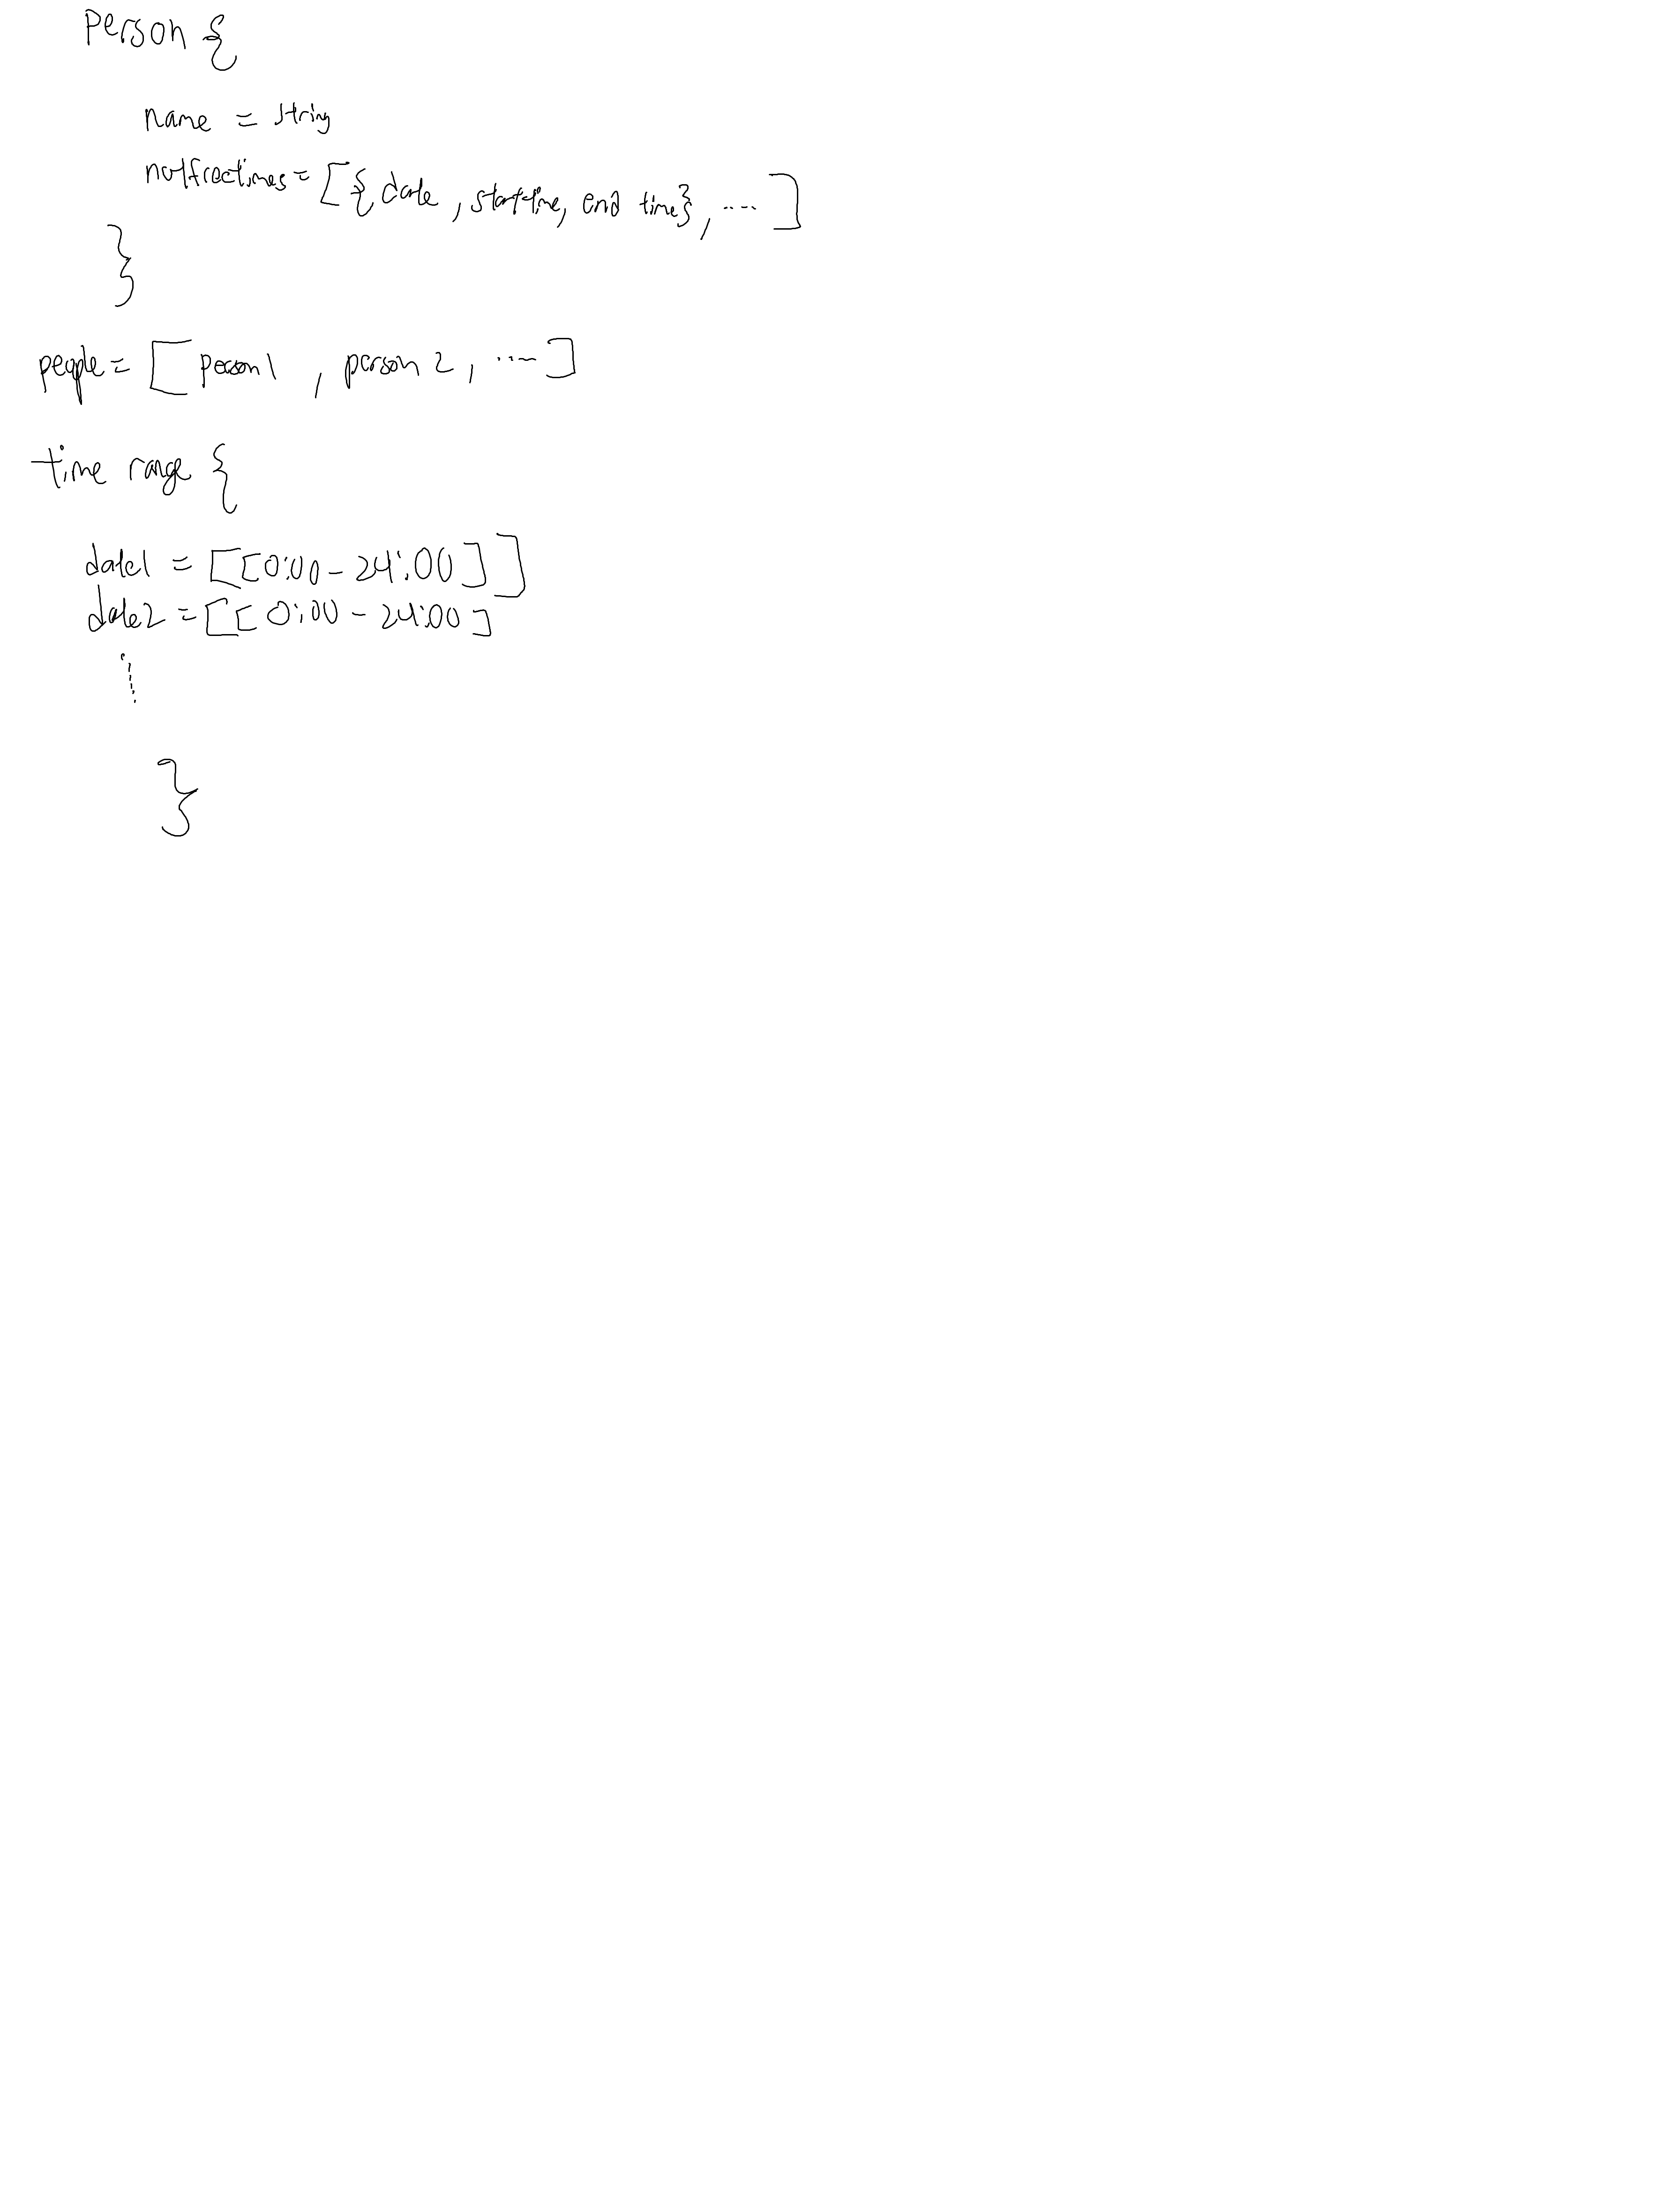 Person {
name = string
notfreetimes = [{date, starttime, end time}, .... ]
}
people = [person1, person2, .... ]
time range {
date1 = [[0:00 - 24:00]]
date2 = [[0:00 - 24:00]
}